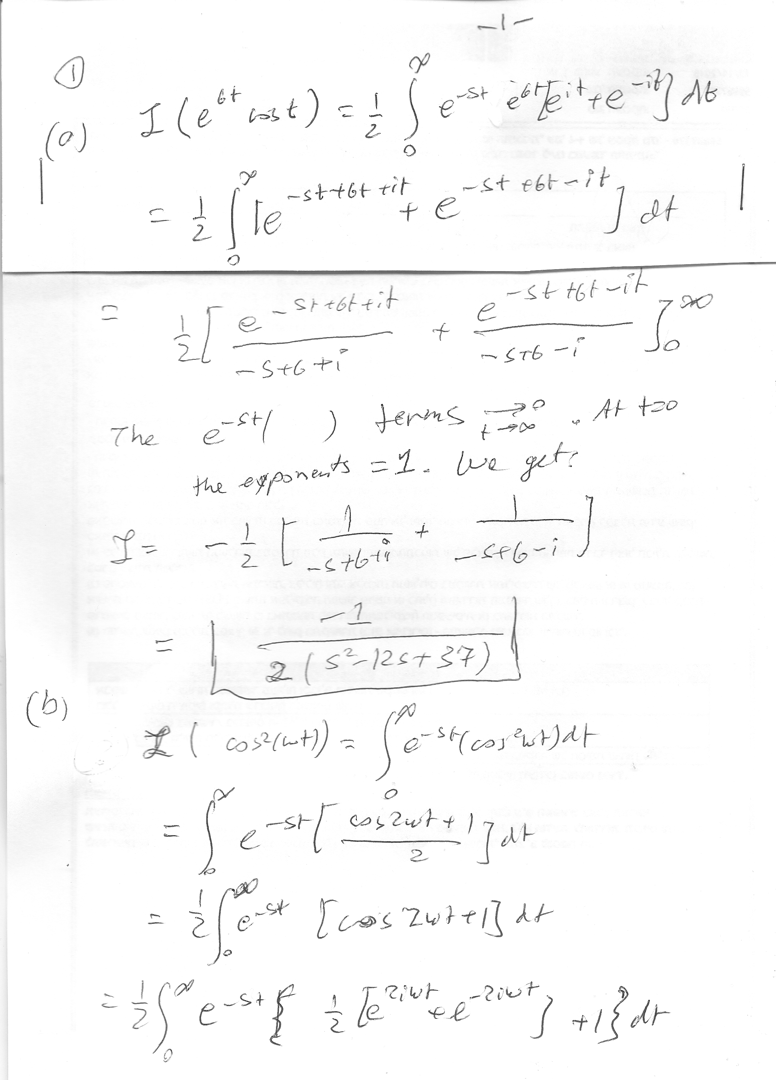 -1-
①
(a) L(e^{6t} cos t) = \frac{1}{2} \int_0^∞ e^{-st} e^{6t}[e^{it} + e^{-it}] dt
= \frac{1}{2} \int_0^∞ [e^{-st+6t+it} + e^{-st+6t-it}] dt
= \frac{1}{2} [ \frac{e^{-st+6t+it}}{-s+6+i} + \frac{e^{-st+6t-it}}{-s+6-i} ]_0^∞
The e^{-st}( ) terms \xrightarrow[t→∞]{→0} . At t=0
the exponents = 1. We get:
L = -\frac{1}{2} [ \frac{1}{-s+6+i} + \frac{1}{-s+6-i} ]
= \frac{-1}{2(s^2-12s+37)}
(b)
L( cos²(ωt)) = \int_0^∞ e^{-st}(cos²ωt) dt
= \int_0^∞ e^{-st} [ \frac{cos 2ωt + 1}{2} ] dt
= \frac{1}{2} \int_0^∞ e^{-st} [cos 2ωt + 1] dt
= \frac{1}{2} \int_0^∞ e^{-st} { \frac{1}{2} [e^{2iωt} + e^{-2iωt}] + 1} dt